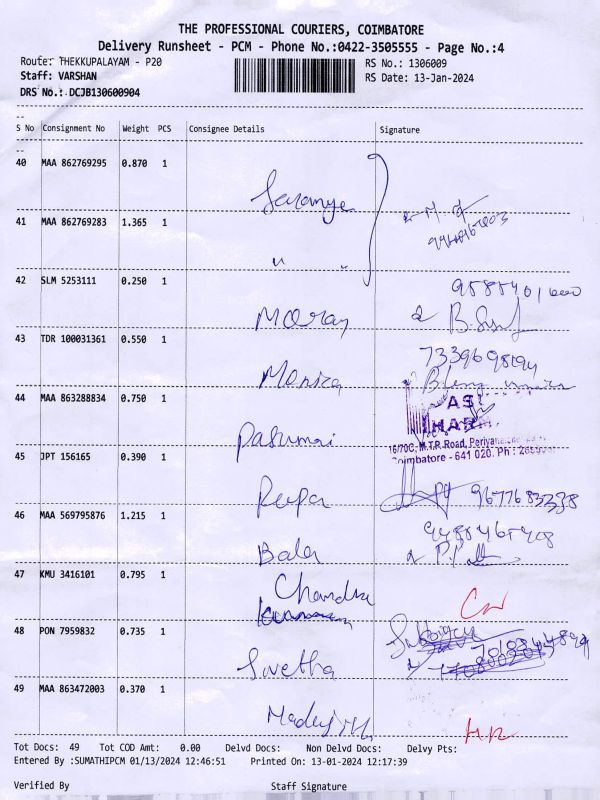 THE PROFESSIONAL COURIERS, COIMBATORE
Delivery Runsheet - PCM - Phone No.:0422-3505555 - Page No.:4
Route: THEKKUPALAYAM - P20
RS No.: 1306009
Staff: VARSHAN
RS Date: 13-Jan-2024
DRS No.: DCJB130600904
S No Consignment No Weight PCS Consignee Details Signature
40 MAA 862769295 0.870 1
Saranya
41 MAA 862769283 1.365 1
" "
42 SLM 5253111 0.250 1
9585401000
43 TDR 100031361 0.550 1
Monica
44 MAA 863288834 0.750 1
Pasumai
16/70C, M.T.P. Road,
Coimbatore - 641 020. Ph :
45 JPT 156165 0.390 1
Rupa 9677683338
46 MAA 569795876 1.215 1
Bala
47 KMU 3416101 0.795 1
Chandra
48 PON 7959832 0.735 1
Swetha
49 MAA 863472003 0.370 1
Tot Docs: 49 Tot COD Amt: 0.00 Delvd Docs: Non Delvd Docs: Delvy Pts:
Entered By :SUMATHIPCM 01/13/2024 12:46:51 Printed On: 13-01-2024 12:17:39
Verified By Staff Signature